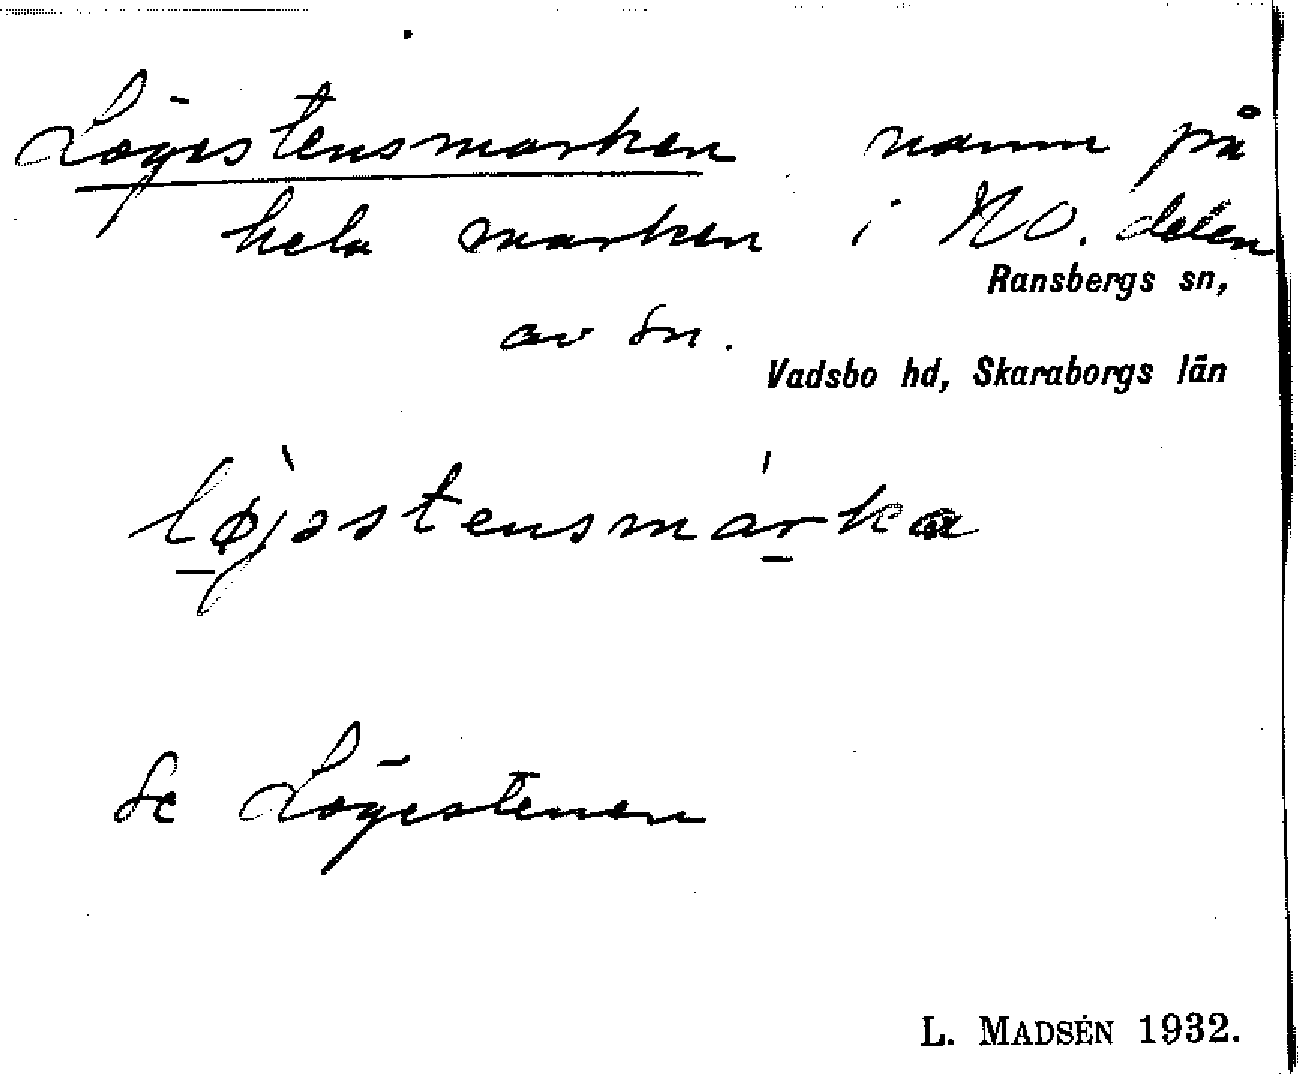 Lögestensmarken namn på
hela marken i NO. delen
Ransbergs sn,
av sn.
Vadsbo hd, Skaraborgs län
løjəstensmarka
Se Lögestenen
L. MADSÉN 1932.